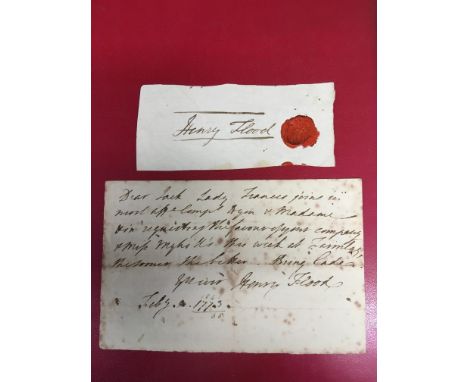 Henry Flood
Dear Jack Lady Frances joins in
most aff Compts to you & Madame
in requesting the favour of your company
& Miss this week at
the sooner the better Bring
Yours Henry Flood
Feby 1773